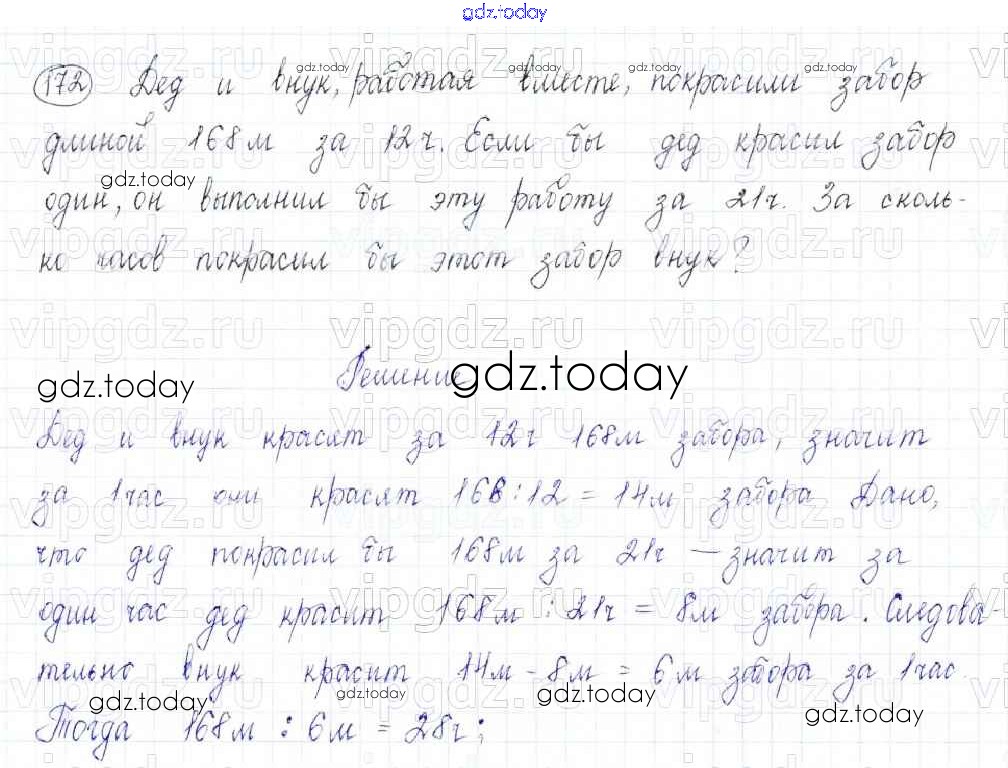 gdz.today
172 Дед и внук, работая вместе, покрасили забор
длиной 168 м за 12 ч. Если бы дед красил забор
один, он выполнил бы эту работу за 21 ч. За сколь-
ко часов покрасил бы этот забор внук?
Решение
Дед и внук красят за 12 ч 168 м забора, значит
за 1 час они красят 168 : 12 = 14 м забора Дано,
что дед покрасил бы 168 м за 21 ч — значит за
один час дед красит 168 м : 21 ч = 8 м забора. Следова-
тельно внук красит 14 м - 8 м = 6 м забора за 1 час.
Тогда 168 м : 6 м = 28 ч;